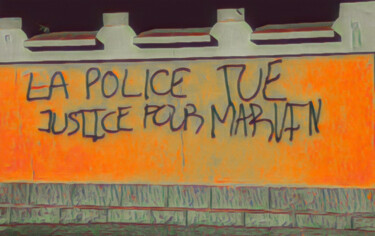 LA POLICE TUE
JUSTICE POUR MARVIN